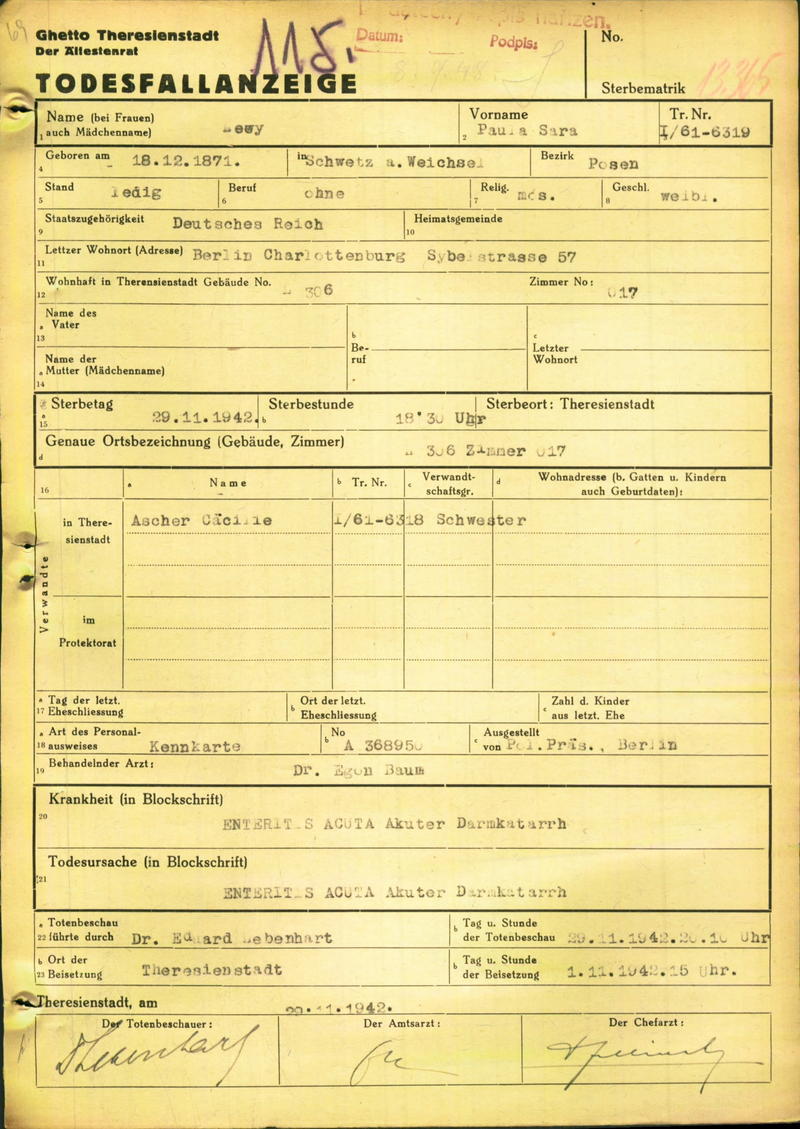 Ghetto Theresienstadt
Der Ältestenrat
TODESFALLANZEIGE
115.
Datum:
Podpis:
No.
Sterbematrik
Name (bei Frauen)
1 auch Mädchenname)
Vorname
2 Paula Sara
Tr. Nr.
I/61-6319
Geboren am 18.12.1871.
4
in Schwetz a. Weichsel
Bezirk Posen
Stand ledig
5
Beruf ohne
6
Relig. mos.
7
Geschl. weibl.
8
Staatszugehörigkeit Deutsches Reich
9
Heimatsgemeinde
10
Lettzer Wohnort (Adresse) Berlin Charlottenburg Sybelstrasse 57
11
Wohnhaft in Therensienstadt Gebäude No. 306
12
Zimmer No: 017
Name des
a Vater
13
b
Be-
ruf
c
Letzter
Wohnort
Name der
a Mutter (Mädchenname)
14
Sterbetag
a
15 29.11.1942.
Sterbestunde
b 18'30 Uhr
Sterbeort: Theresienstadt
Genaue Ortsbezeichnung (Gebäude, Zimmer)
d 306 Zimmer 017
16
a Name
b Tr. Nr.
c Verwandt-
schaftsgr.
d Wohnadresse (b. Gatten u. Kindern
auch Geburtdaten):
Verwandte
in There-
sienstadt
Ascher Cäcilie I/61-6318 Schwester
im
Protektorat
a Tag der letzt.
17 Eheschliessung
b Ort der letzt.
Eheschliessung
c Zahl d. Kinder
aus letzt. Ehe
a Art des Personal-
18 ausweises Kennkarte
b No
A 368950
c Ausgestellt
von Pol.Präs., Berlin
Behandelnder Arzt:
19 Dr. Egon Baum
Krankheit (in Blockschrift)
20
ENTERITIS ACUTA Akuter Darmkatarrh
Todesursache (in Blockschrift)
21
ENTERITIS ACUTA Akuter Darmkatarrh
a Totenbeschau
22 führte durch Dr. Eduard Lebenhart
b Tag u. Stunde
der Totenbeschau 29.11.1942. Uhr
b Ort der
23 Beisetzung Theresienstadt
b Tag u. Stunde
der Beisetzung 1.11.1942.15 Uhr.
Theresienstadt, am 11.1942.
Der Totenbeschauer:
Der Amtsarzt:
Der Chefarzt: